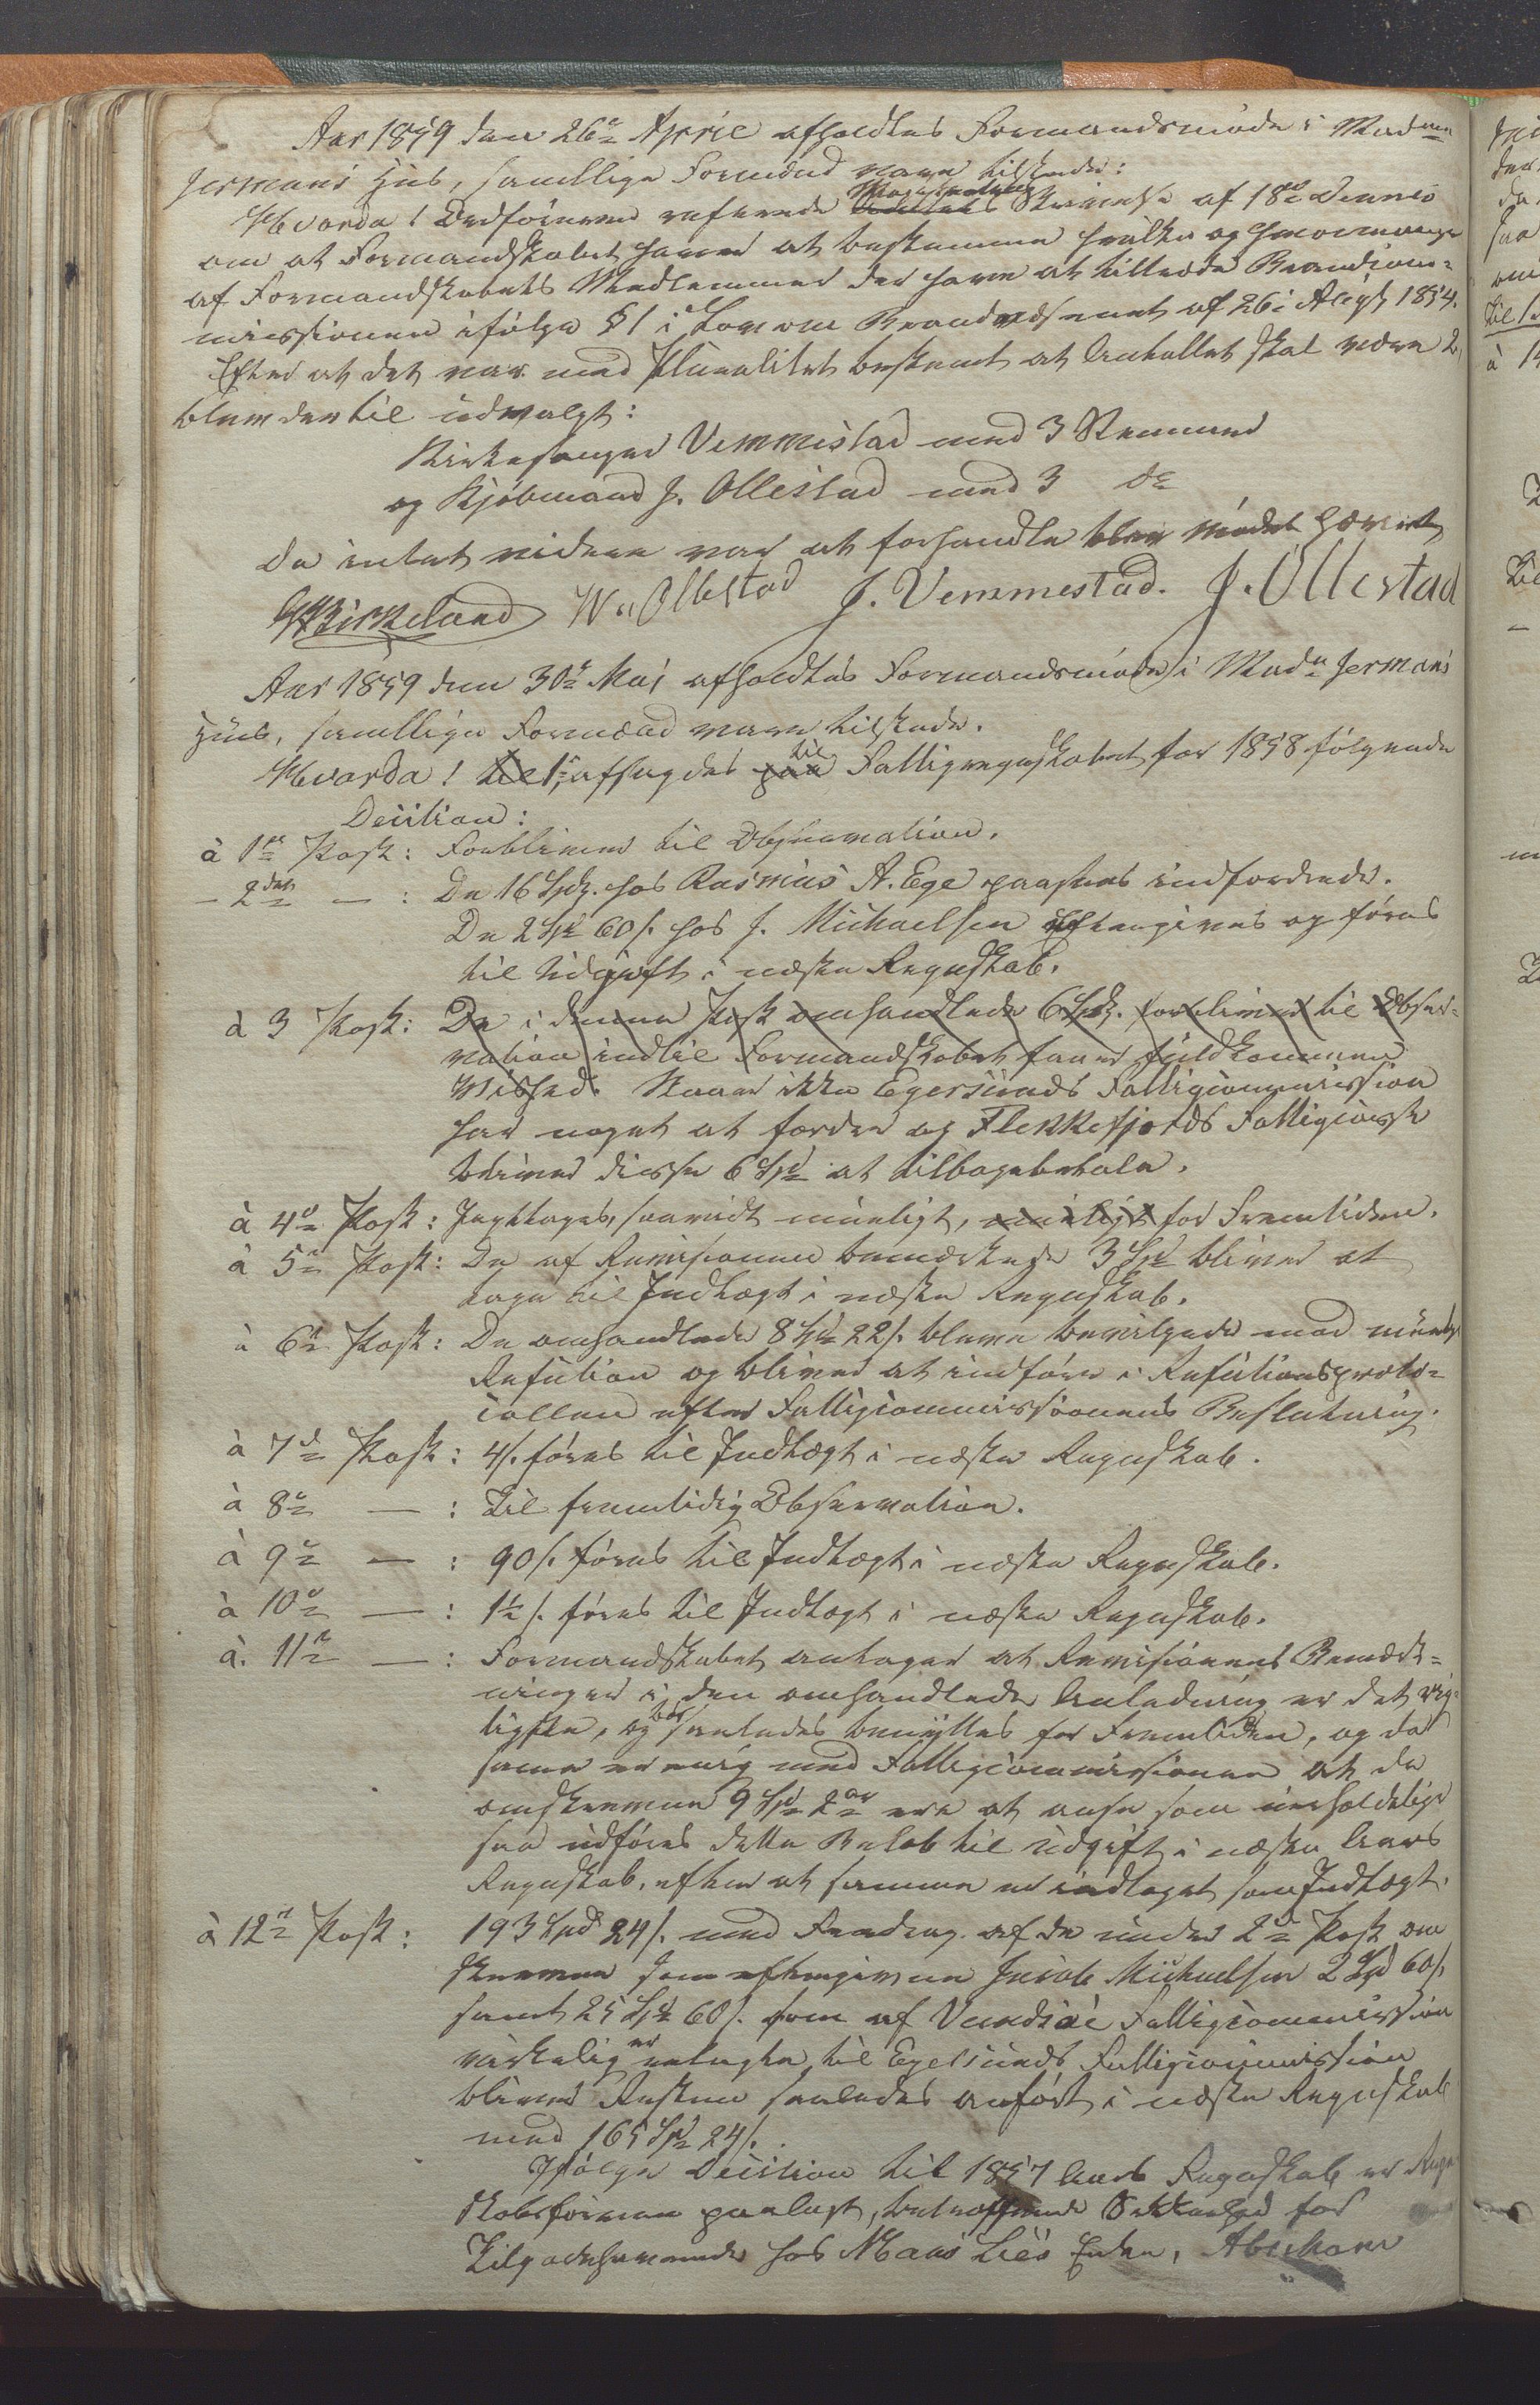 Aar 1859 den 26de April afholdtes Formandsmøde i Madme
Jermans Huus, samtlige Formænd vare tilstede:
Hvorda! Ordføreren refererede Magistratens Skrivelse af 18de dennes
om at Formandskabet haver at bestemme hvilke og hvormange
af Formandskabets Medlemmer der have at tiltræde Brandcom-
missionen ifølge §1 i Lov om Brandvæsenet af 26de 1854.
Efter at det var med Pluralitet bestemt at Antallet skal være 2,
blev dertil udvalgt:
Kirkesanger Vemmestad med 3 Stemmer
og Kjøbmand J. Ollestad med 3 do
da intet videre var at forhandle blev Mødet hævet
Birkeland W. Ollestad J. Vemmestad. J. Ollestad
Aar 1859 den 30te Mai afholdtes Formandsmøde i Made Jermans
Huus, samtlige Formænd vare tilstede.
Hvorda! til 1, afsagdes paa til Fattigregnskabet for 1858 følgende
Decition:
à 1ste Post: Forbliver til Observation.
- 2den — : De 16 Spd. hos Rasmus A. Ege paasees indfordrede.
De 2 Spd 60 s. hos J. Michaelsen eftergives og føres
til Udgift i næste Regnskab.
à 3 Post: De i denne Post omhandlede 6 Spd. forbliver til Obser-
vation indtil Formandskabet faaer fuldkommen
Vished. Naar ikke Egersunds Fattigcommission
har noget at fordre og Flekkefjords Fattigcasse
bliver disse 6 Spd at tilbagebetale.
à 4de Post: Iagttages, saavidt mueligt, mueligt for Fremtiden.
à 5te Post: De af Revisionen bemærkede 3 Spd bliver at
tage til Indtægt i næste Regnskab.
à 6te Post: De omhandlede 8 Spd 22 s. bleve bevilgede mod
Refution og bliver at indføre i Refutionsproto-
collen efter Fattigcommissionens Beslutning.
à 7de Post: 4 s. føres til Indtægt i næste Regnskab.
à 8de — : Til fremtidig Observation.
à 9de — : 90 s. føres til Indtægt i næste Regnskab.
à 10de — : 1½ s. føres til Indtægt i næste Regnskab.
à. 11te — : Formandskabet antager at Revisionens Bemærk-
ninger i den omhandlede Anledning er det rig-
tigste, og bør saaledes benyttes for Fremtiden, og da
samme er enig med Fattigcommissionen at de
omskrevne 9 Spd 2 ere at ansee som uerholdelige
saa udføres dette Beløb til Udgift i næste Aars
Regnskab, efter at samme er indtaget som Indtægt.
à 12te Post: 193 Spd 24 s. med Fradrag af de under 2den Post om
skrevne som eftergivne Jacob Michaelsen 2 Spd 60 s.
samt 25 Spd 60 s. som af Fattigcommission
virkelig er erlagte til Egersunds Fattigcommission
bliver Resten saaledes anført i næste Regnskab
med 165 Spd 24 s.
Ifølge Decition til 1857 Aars Regnskab er Regn
skabsføreren paalagt, betræffende for
Tilgodehavende hos Enke, Abraham